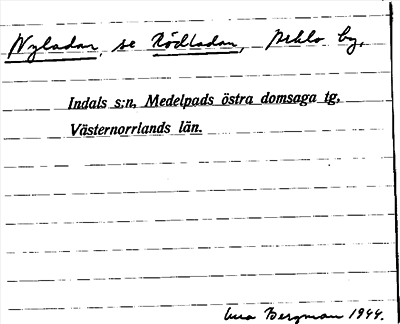 Nyladan, se Rödladan, by.
Indals s:n, Medelpads östra domsaga tg,
Västernorrlands län.
Bergman 1944.